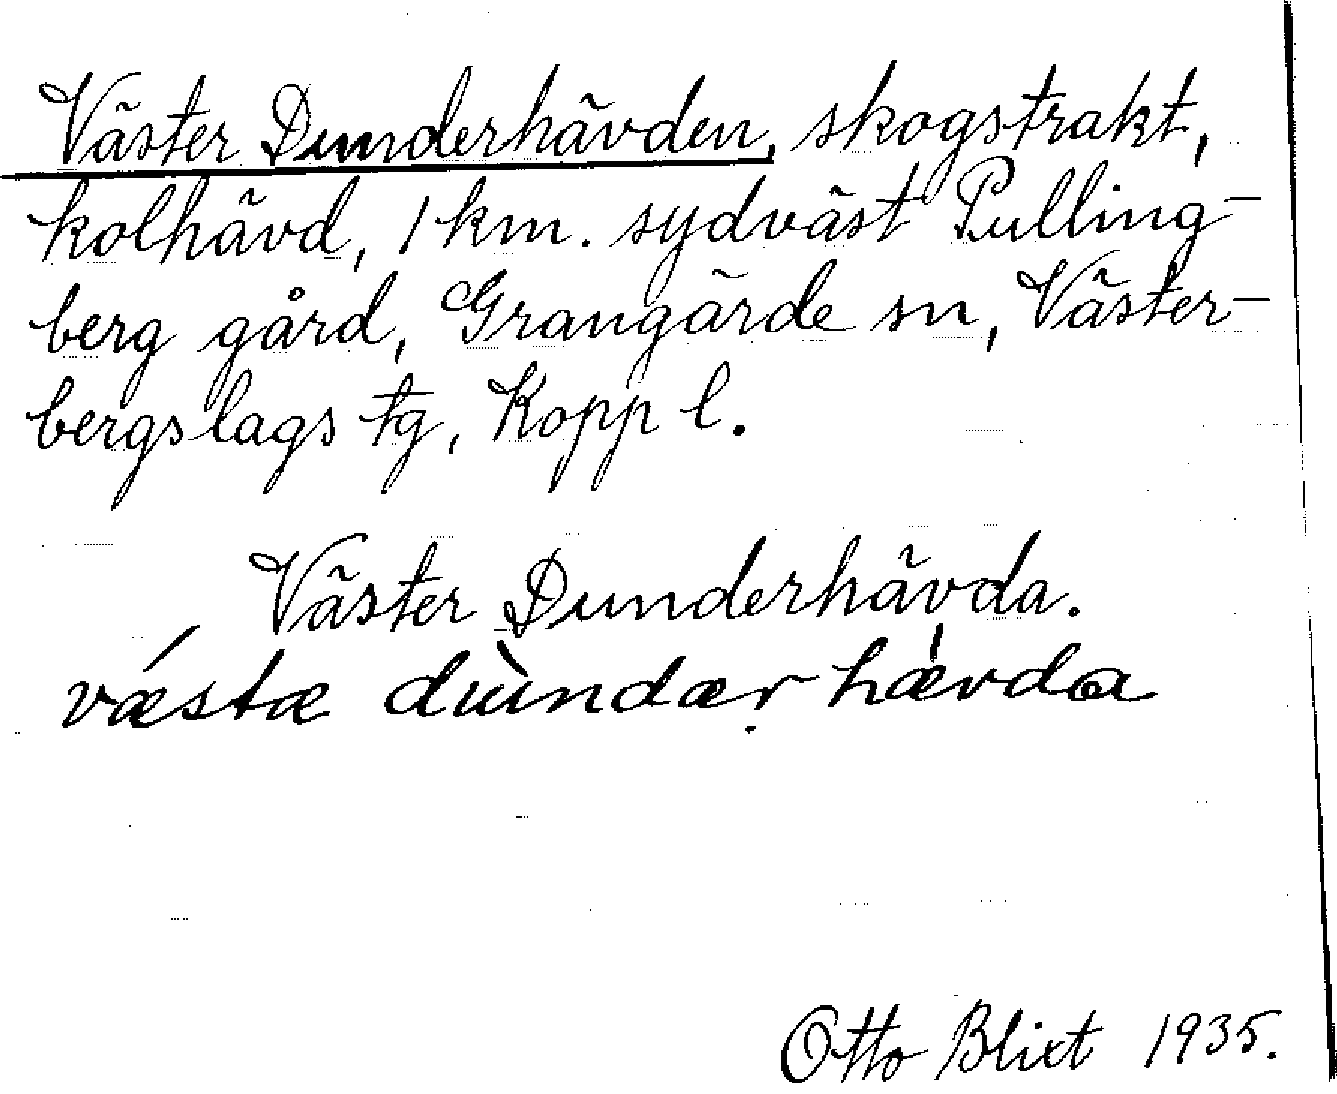 Väster Dunderhävden, skogstrakt,
kolhävd, 1 km. sydväst Pulling-
berg gård, Grangärde sn, Väster-
bergslags tg, Kopp l.
Väster Dunderhävda.
vǽstæ dùndær̤ hǽvda
Otto Blixt 1935.